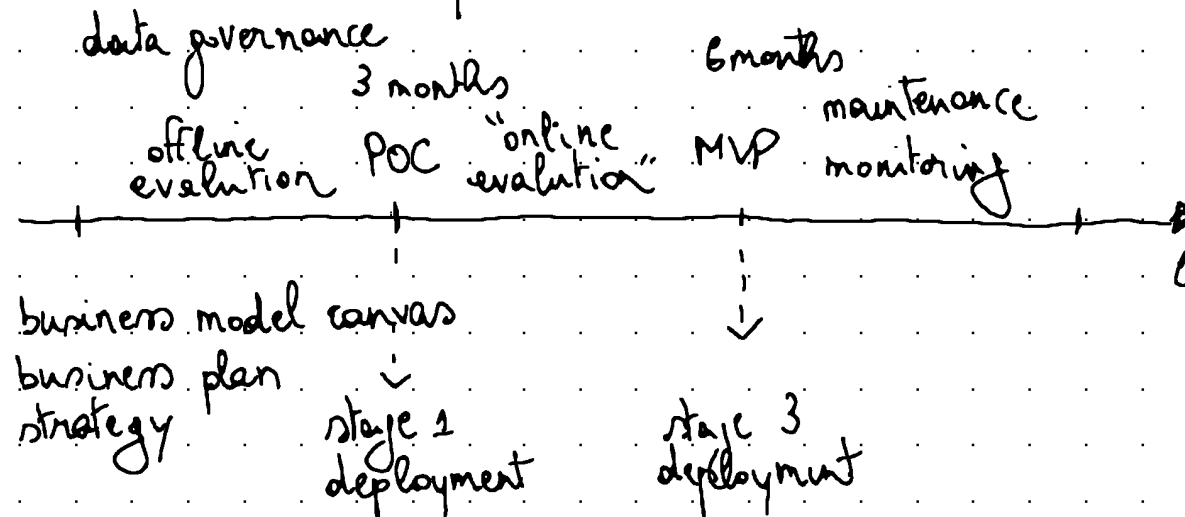 data governance
6 months
3 months
maintenance
offline
evalution
POC
"online
evalution"
MVP
monitoring
business model canvas
business plan
strategy
stage 1
deployment
stage 3
deployment